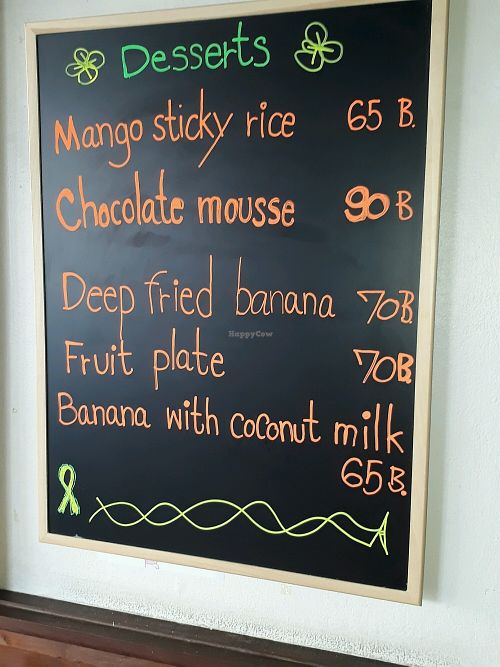 Desserts
Mango sticky rice 65 B.
Chocolate mousse 90 B
Deep fried banana 70B.
Fruit plate 70B.
Banana with coconut milk
65B.
HappyCow